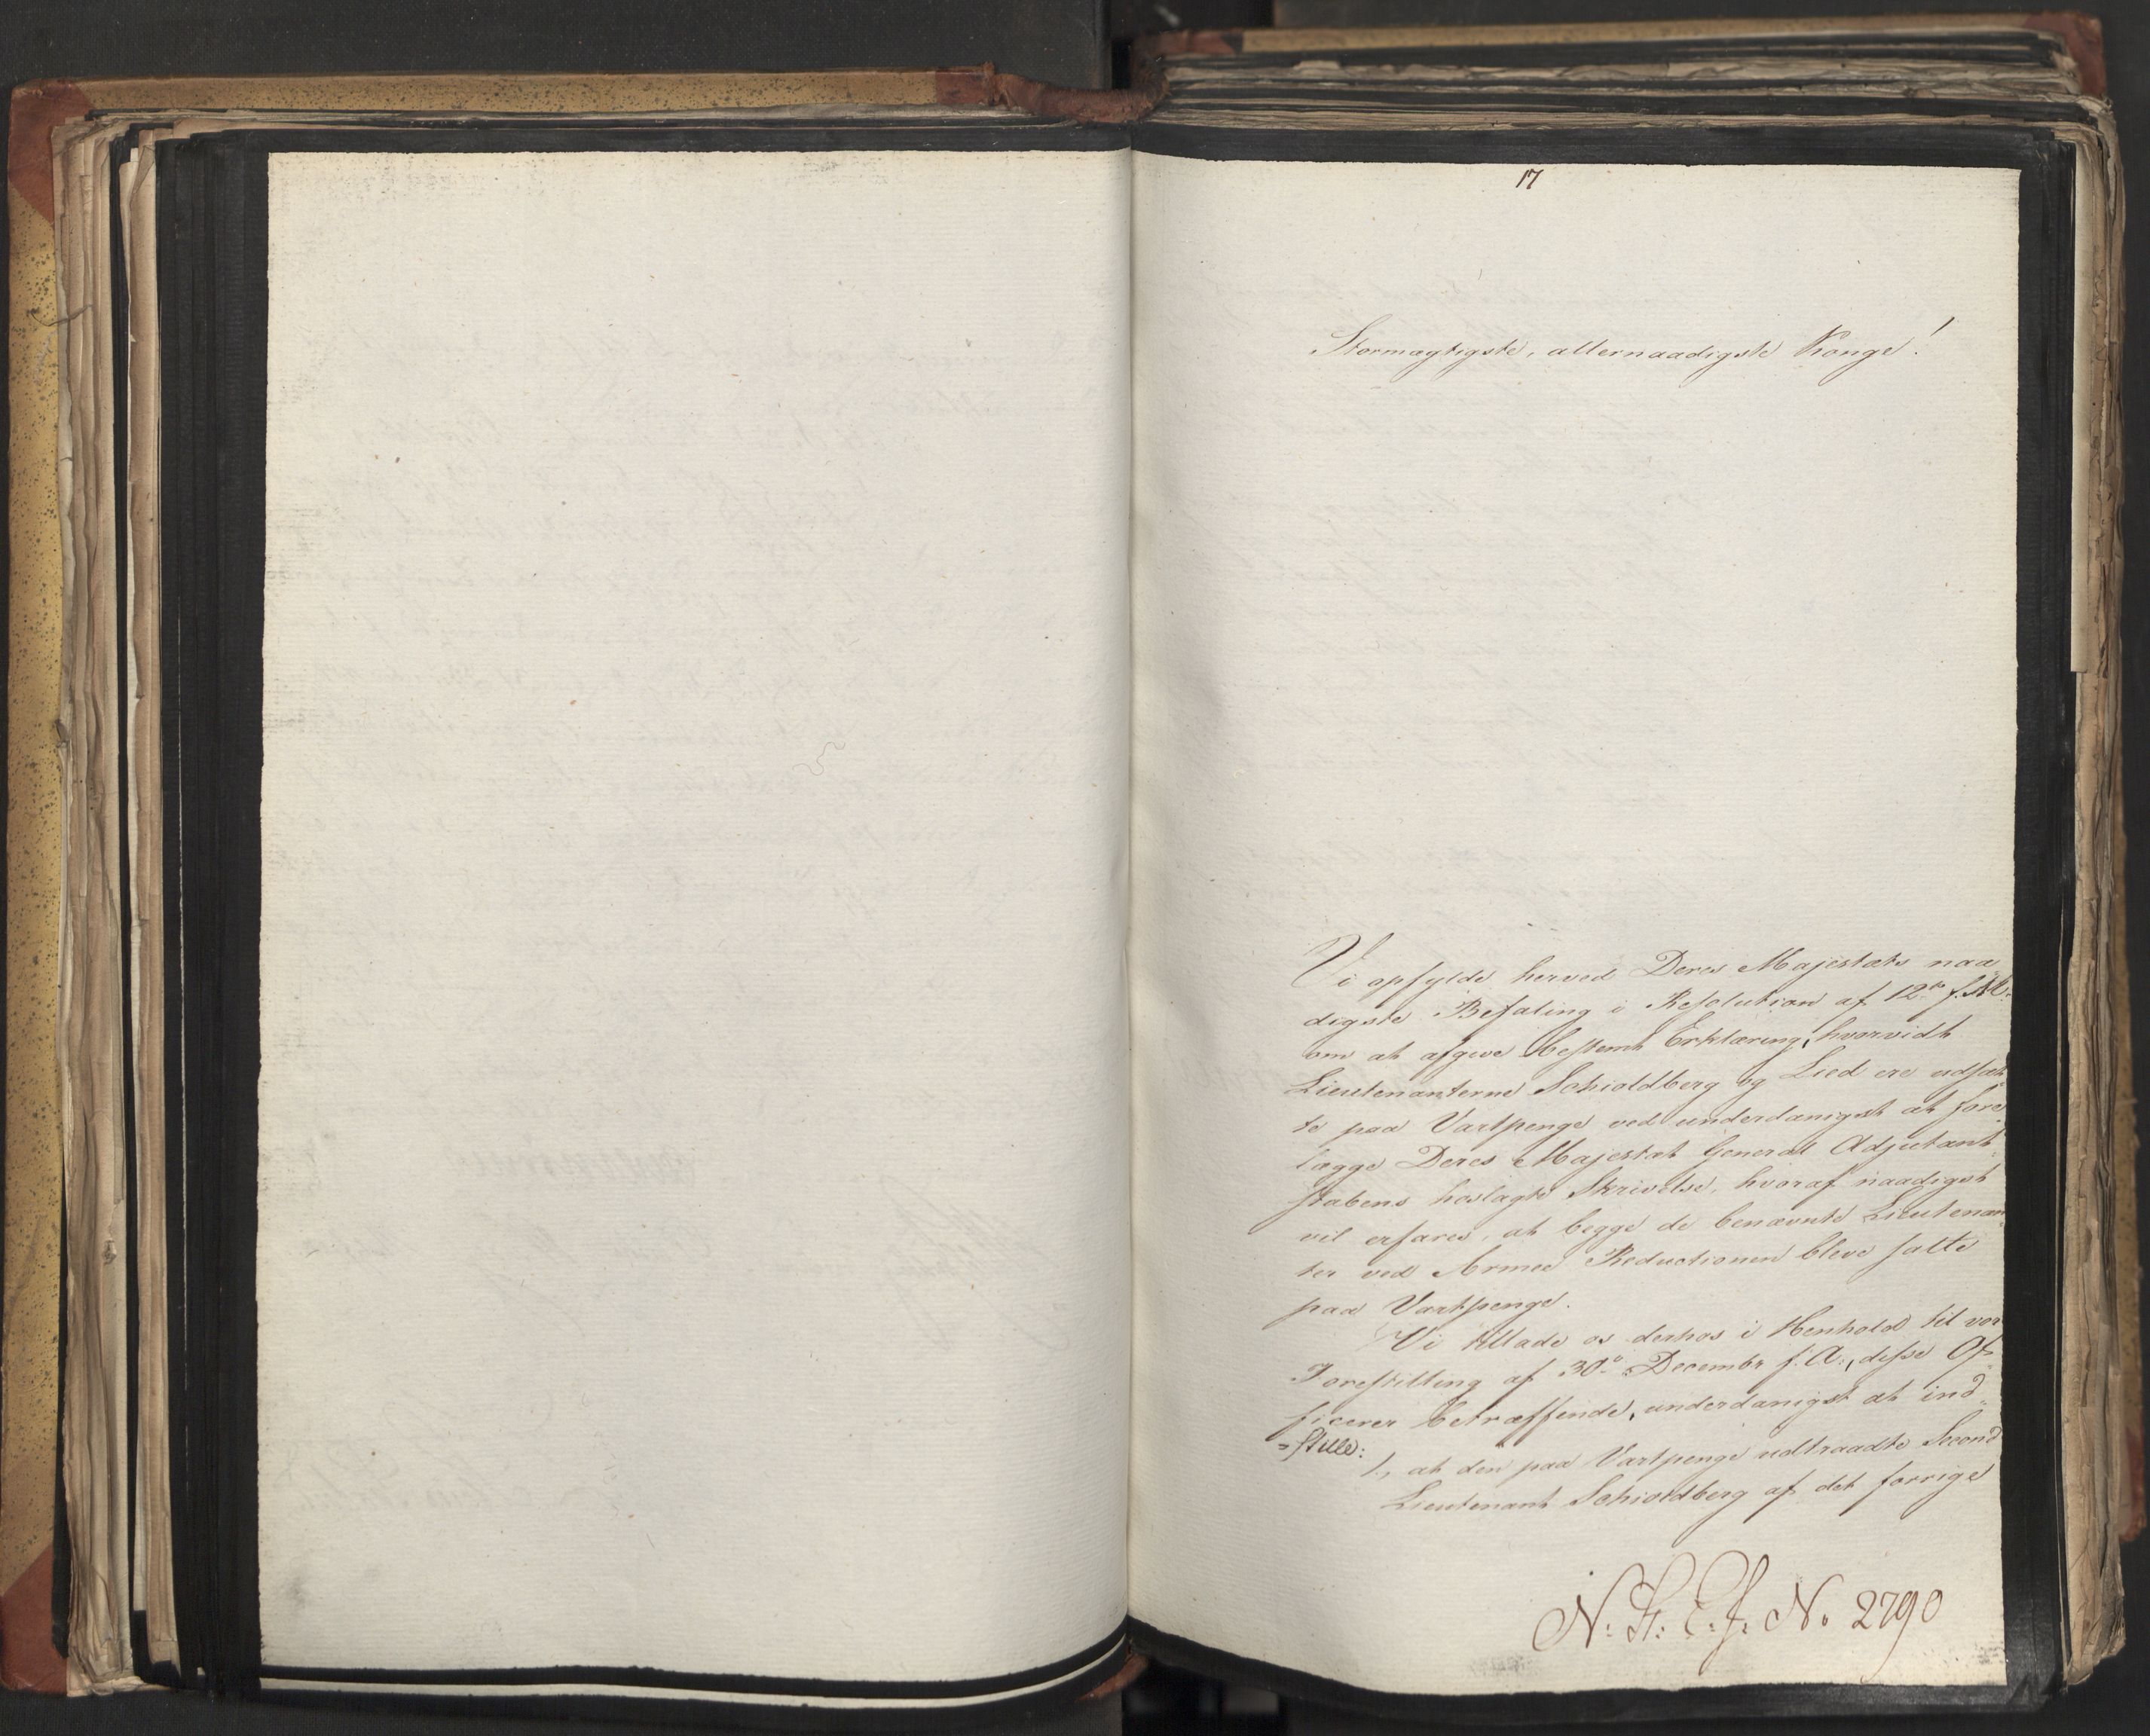 17
Stormægtigste, allernaadigste Konge!
Vi opfylde herved Deres Majestæts naa„
digste Befaling i Resolution af 12te f. M.
om at afgive bestemt Erklæring, hvorvidt
Lieutenanterne Schioldberg og Lied ere udsat„
te paa Vartpenge ved underdanigst at fore„
lægge Deres Majestæt General Adjutant„
stabens hoslagte Skrivelse, hvoraf naadigst
vil erfares, at begge de benævnte Lieutenan„
ter ved Armee Reductionen bleve satte
paa Vartpenge.
Vi tillade os derhos i Henhold til vor
Forestilling af 30te Decembr f. A., disse Of„
ficerer betræffende, underdanigst at ind„
=stille:
1, at den paa Vartpenge udtraadte Second
Lieutenant Schioldberg af det forrige
N. 2790